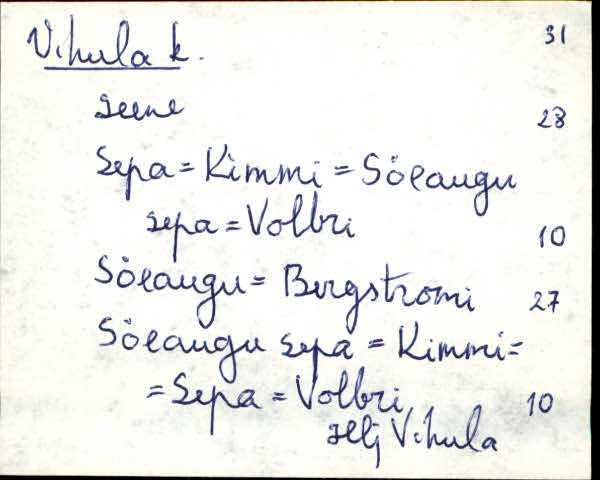 Vihula k. 31
Seene 28
Sepa = Kimmi = Söeaugu
sepa = Volbri 10
Söeaugu = Bergströmi 27
Söeaugu sepa = Kimmi =
= Sepa = Volbri 10
Hlj Vihula